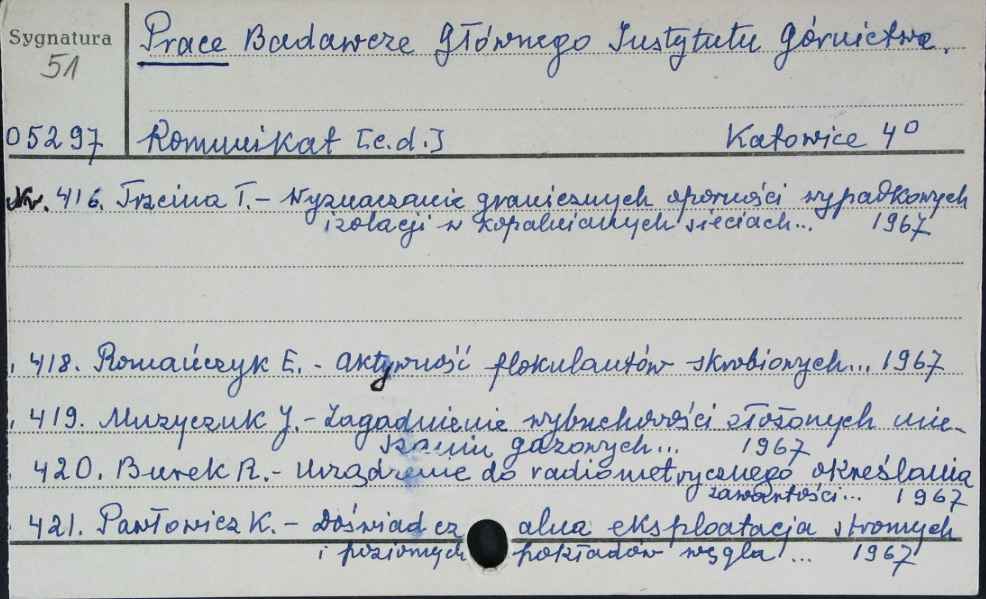 Sygnatura
51
Prace Badawcze Głównego Instytutu Górnictwa.
05297 Komunikat [c.d.] Katowice 4°
Nr. 416. Trzcina T. - Wyznaczanie granicznych oporności wypadkowych
izolacji w kopalnianych sieciach... 1967
418. Romańczyk E. - Aktywność flokulantów skrobiowych... 1967
419. Muzyczuk J. - Zagadnienie wybuchowości złożonych mie-
szanin gazowych... 1967
420. Burek R. - Urządzenie do radiometrycznego określania
zawartości... 1967
421. Pawłowicz K. - Doświadczalna eksploatacja stromych
i poziomych pokładów węgla... 1967